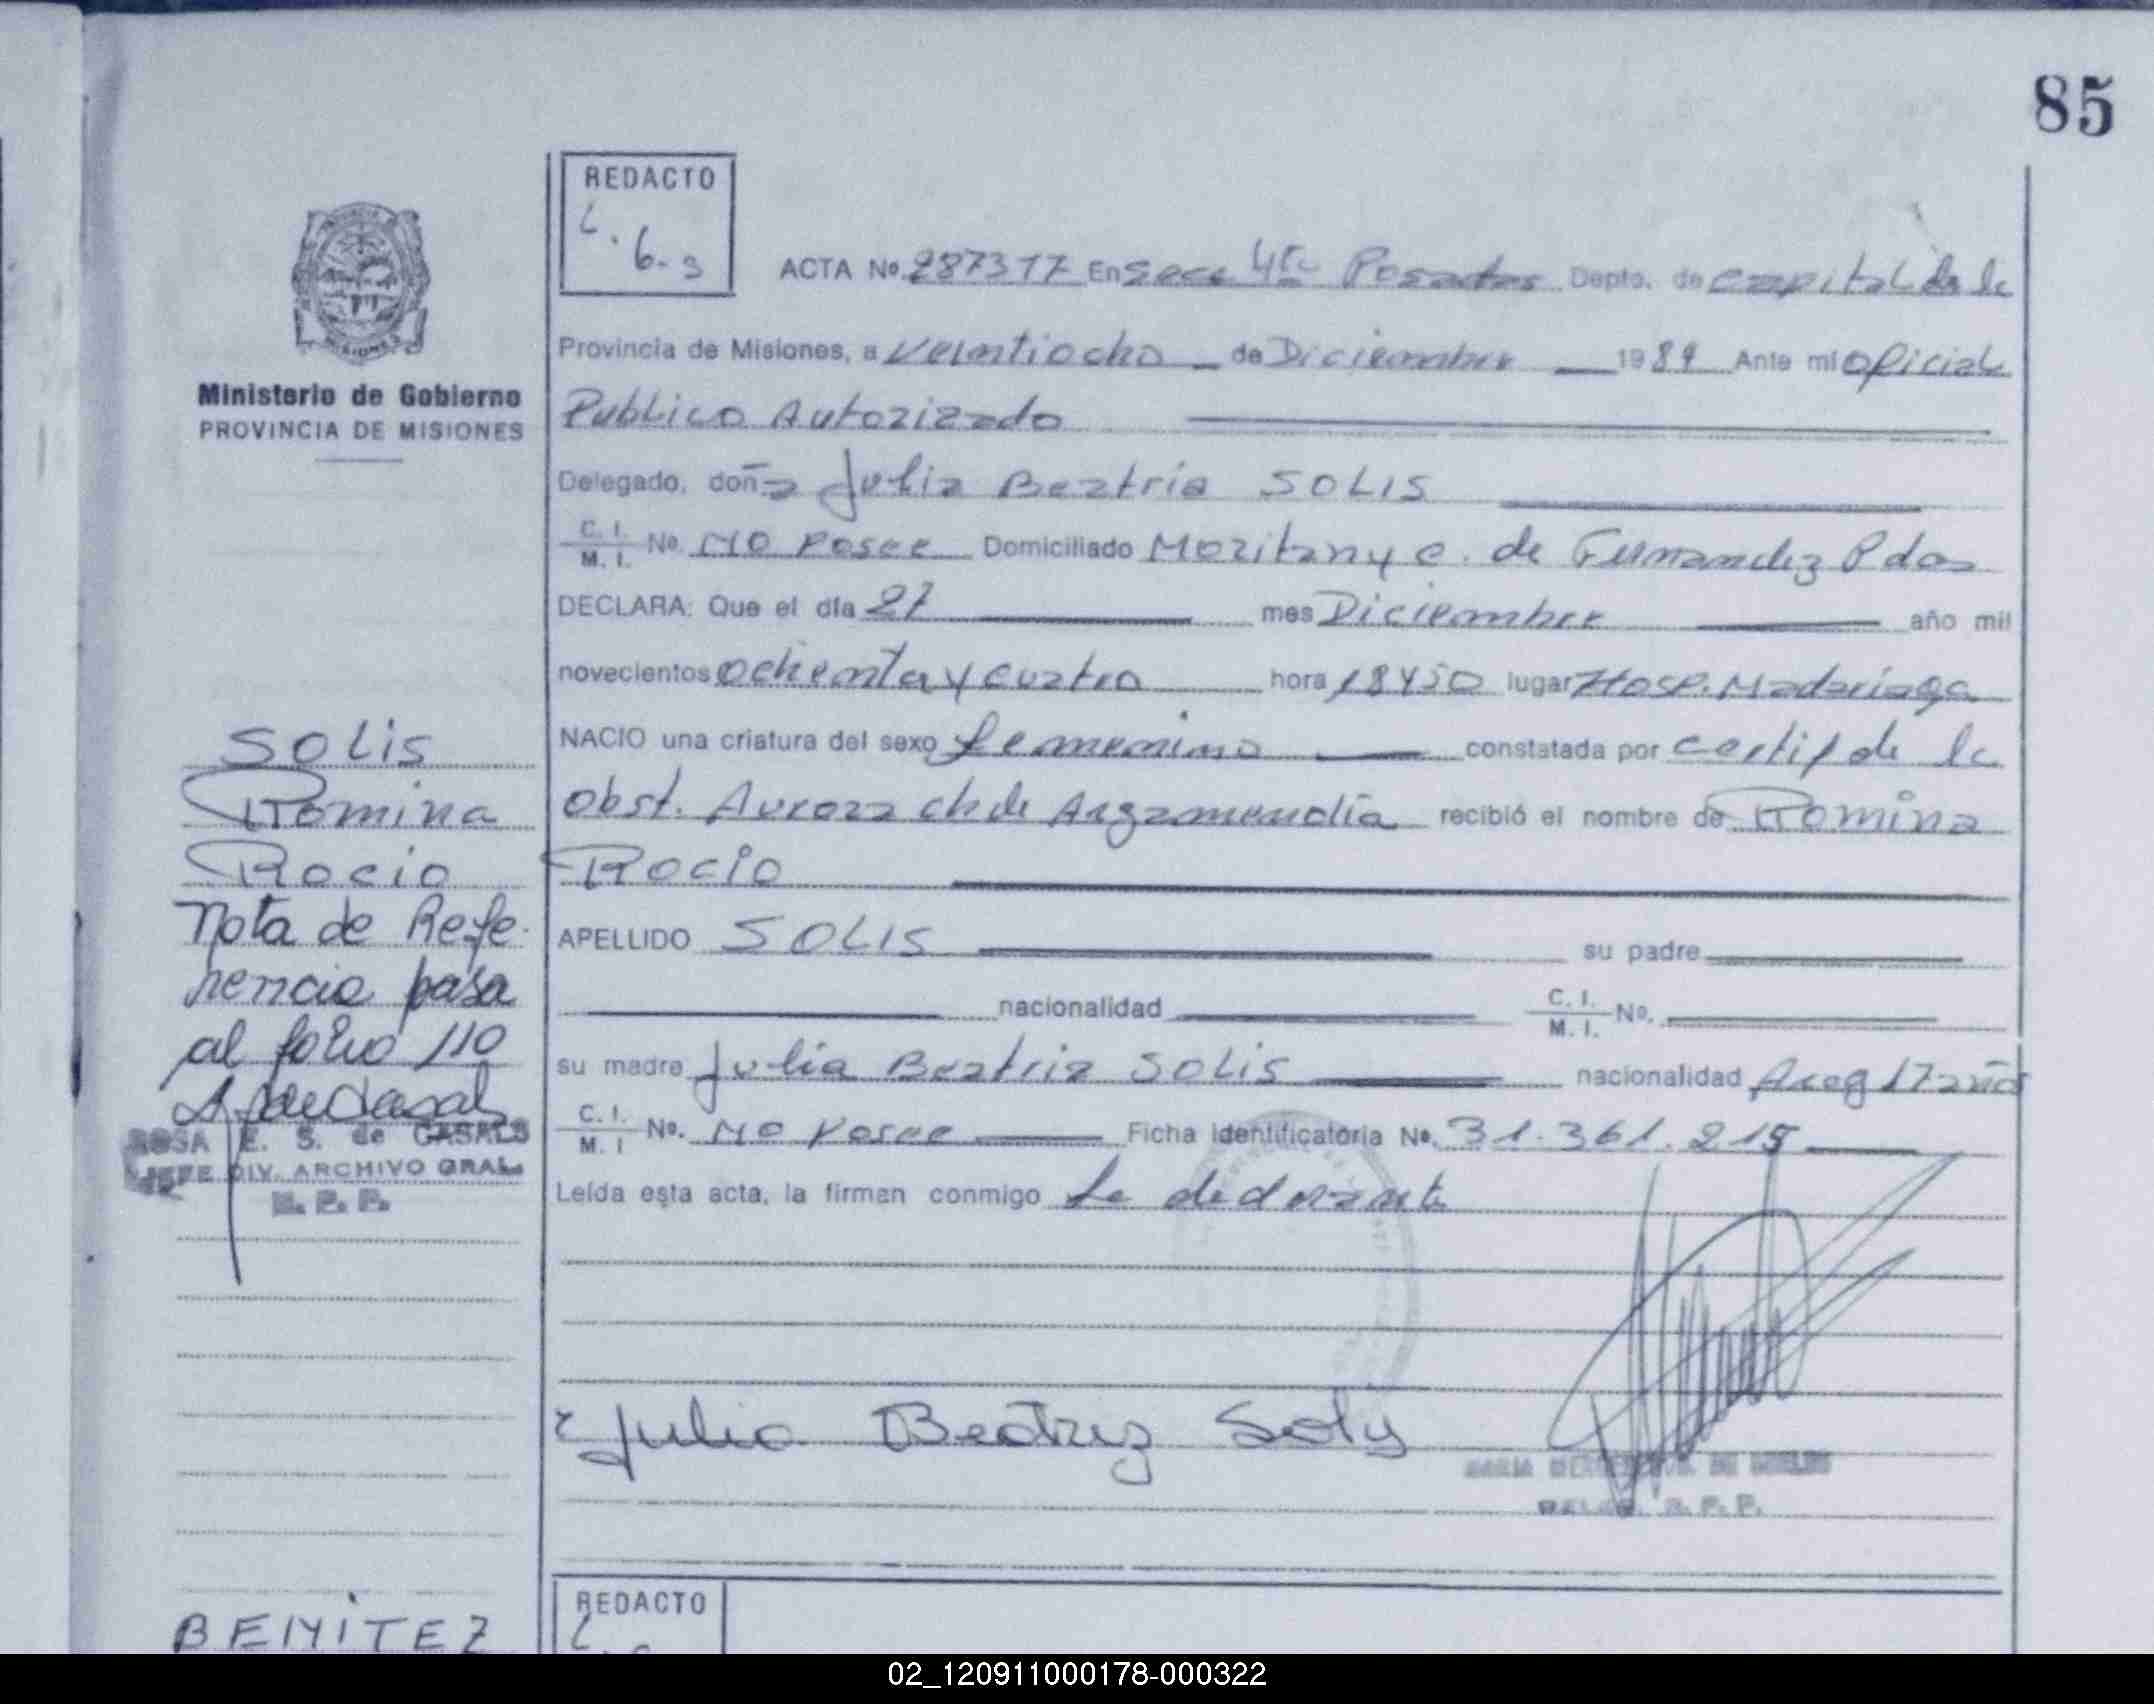 85
REDACTO
L. 6. 3
ACTA No. 287317 En Secc 4ta Posadas Depto. de capital de la
Provincia de Misiones, a veintiocho de Diciembre 1984 Ante mi oficial
Publico Autorizado
Delegado, doña Julia Beatriz SOLIS
C. I. / M. I. No. No Posee Domiciliado Moritan y c. de Fernandez Pdas
DECLARA: Que el día 27 mes Diciembre año mil
novecientos ochenta y cuatro hora 18 y 50 lugar Hosp. Madariaga
NACIO una criatura del sexo femenino constatada por certif de la
obst. Aurora ch de Argamendia recibió el nombre de Romina
Rocio
APELLIDO SOLIS su padre
nacionalidad C. I. / M. I. No.
su madre Julia Beatriz SOLIS nacionalidad Arog 17 años
C. I. / M. I No. No Posee Ficha Identificatoria No. 31.361.215
Leída esta acta, la firman conmigo La declarante
Julia Beatriz Solis
DELEG. R. P. P.
Ministerio de Gobierno
PROVINCIA DE MISIONES
SOLIS
Romina
Rocio
Nota de Refe-
rencia pasa
al folio 110
ROSA E. S. de CASALS
JEFE DIV. ARCHIVO GRAL.
R. P. P.
REDACTO
BENITEZ
02_120911000178-000322